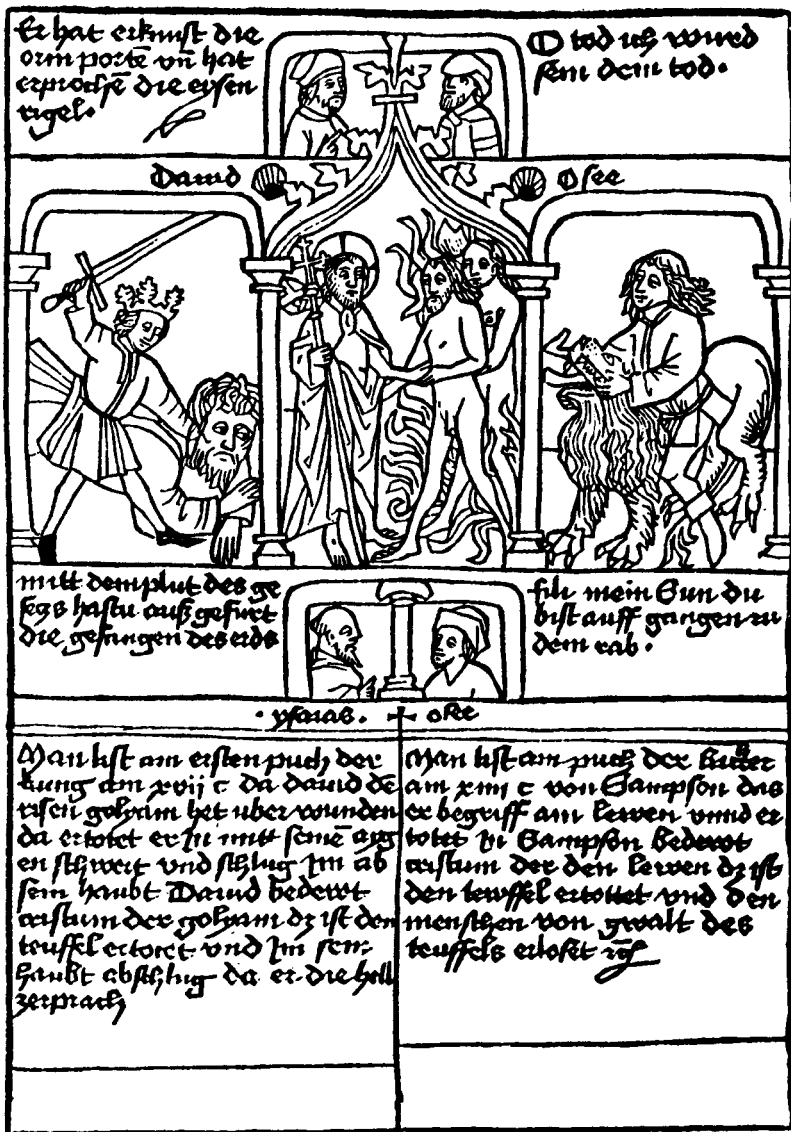 Er hat erknust die
orin portē vñ hat
erprochē die eysen
rigel.
O tod ich wurd
sein dein tod.
Dauid
Osee
mitt dem plut des ge
segs hastu auß gefurt
die gefangen des erds
fili mein Sun du
bist auff gangen zu
dem rab.
ysaias. osee
Man list am ersten puch der
kung am xvij c da dauid dē
risen golyam het uber wunden
da ertotet er in mitt seinē ayg
en schwert vnd schlug im ab
sein haubt Dauid bedewt
cristum der golyam dz ist den
teuffel ertotet vnd im sein
haubt abschlug da er die hell
zerprach
Man list am puch der
am xiiii c von Sampson das
er begriff ain lewen vnnd er
totet in Sampson bedewt
cristum der den lewen dz ist
den tewffel ertottet vnd den
menschen von gwalt des
teuffels erloset